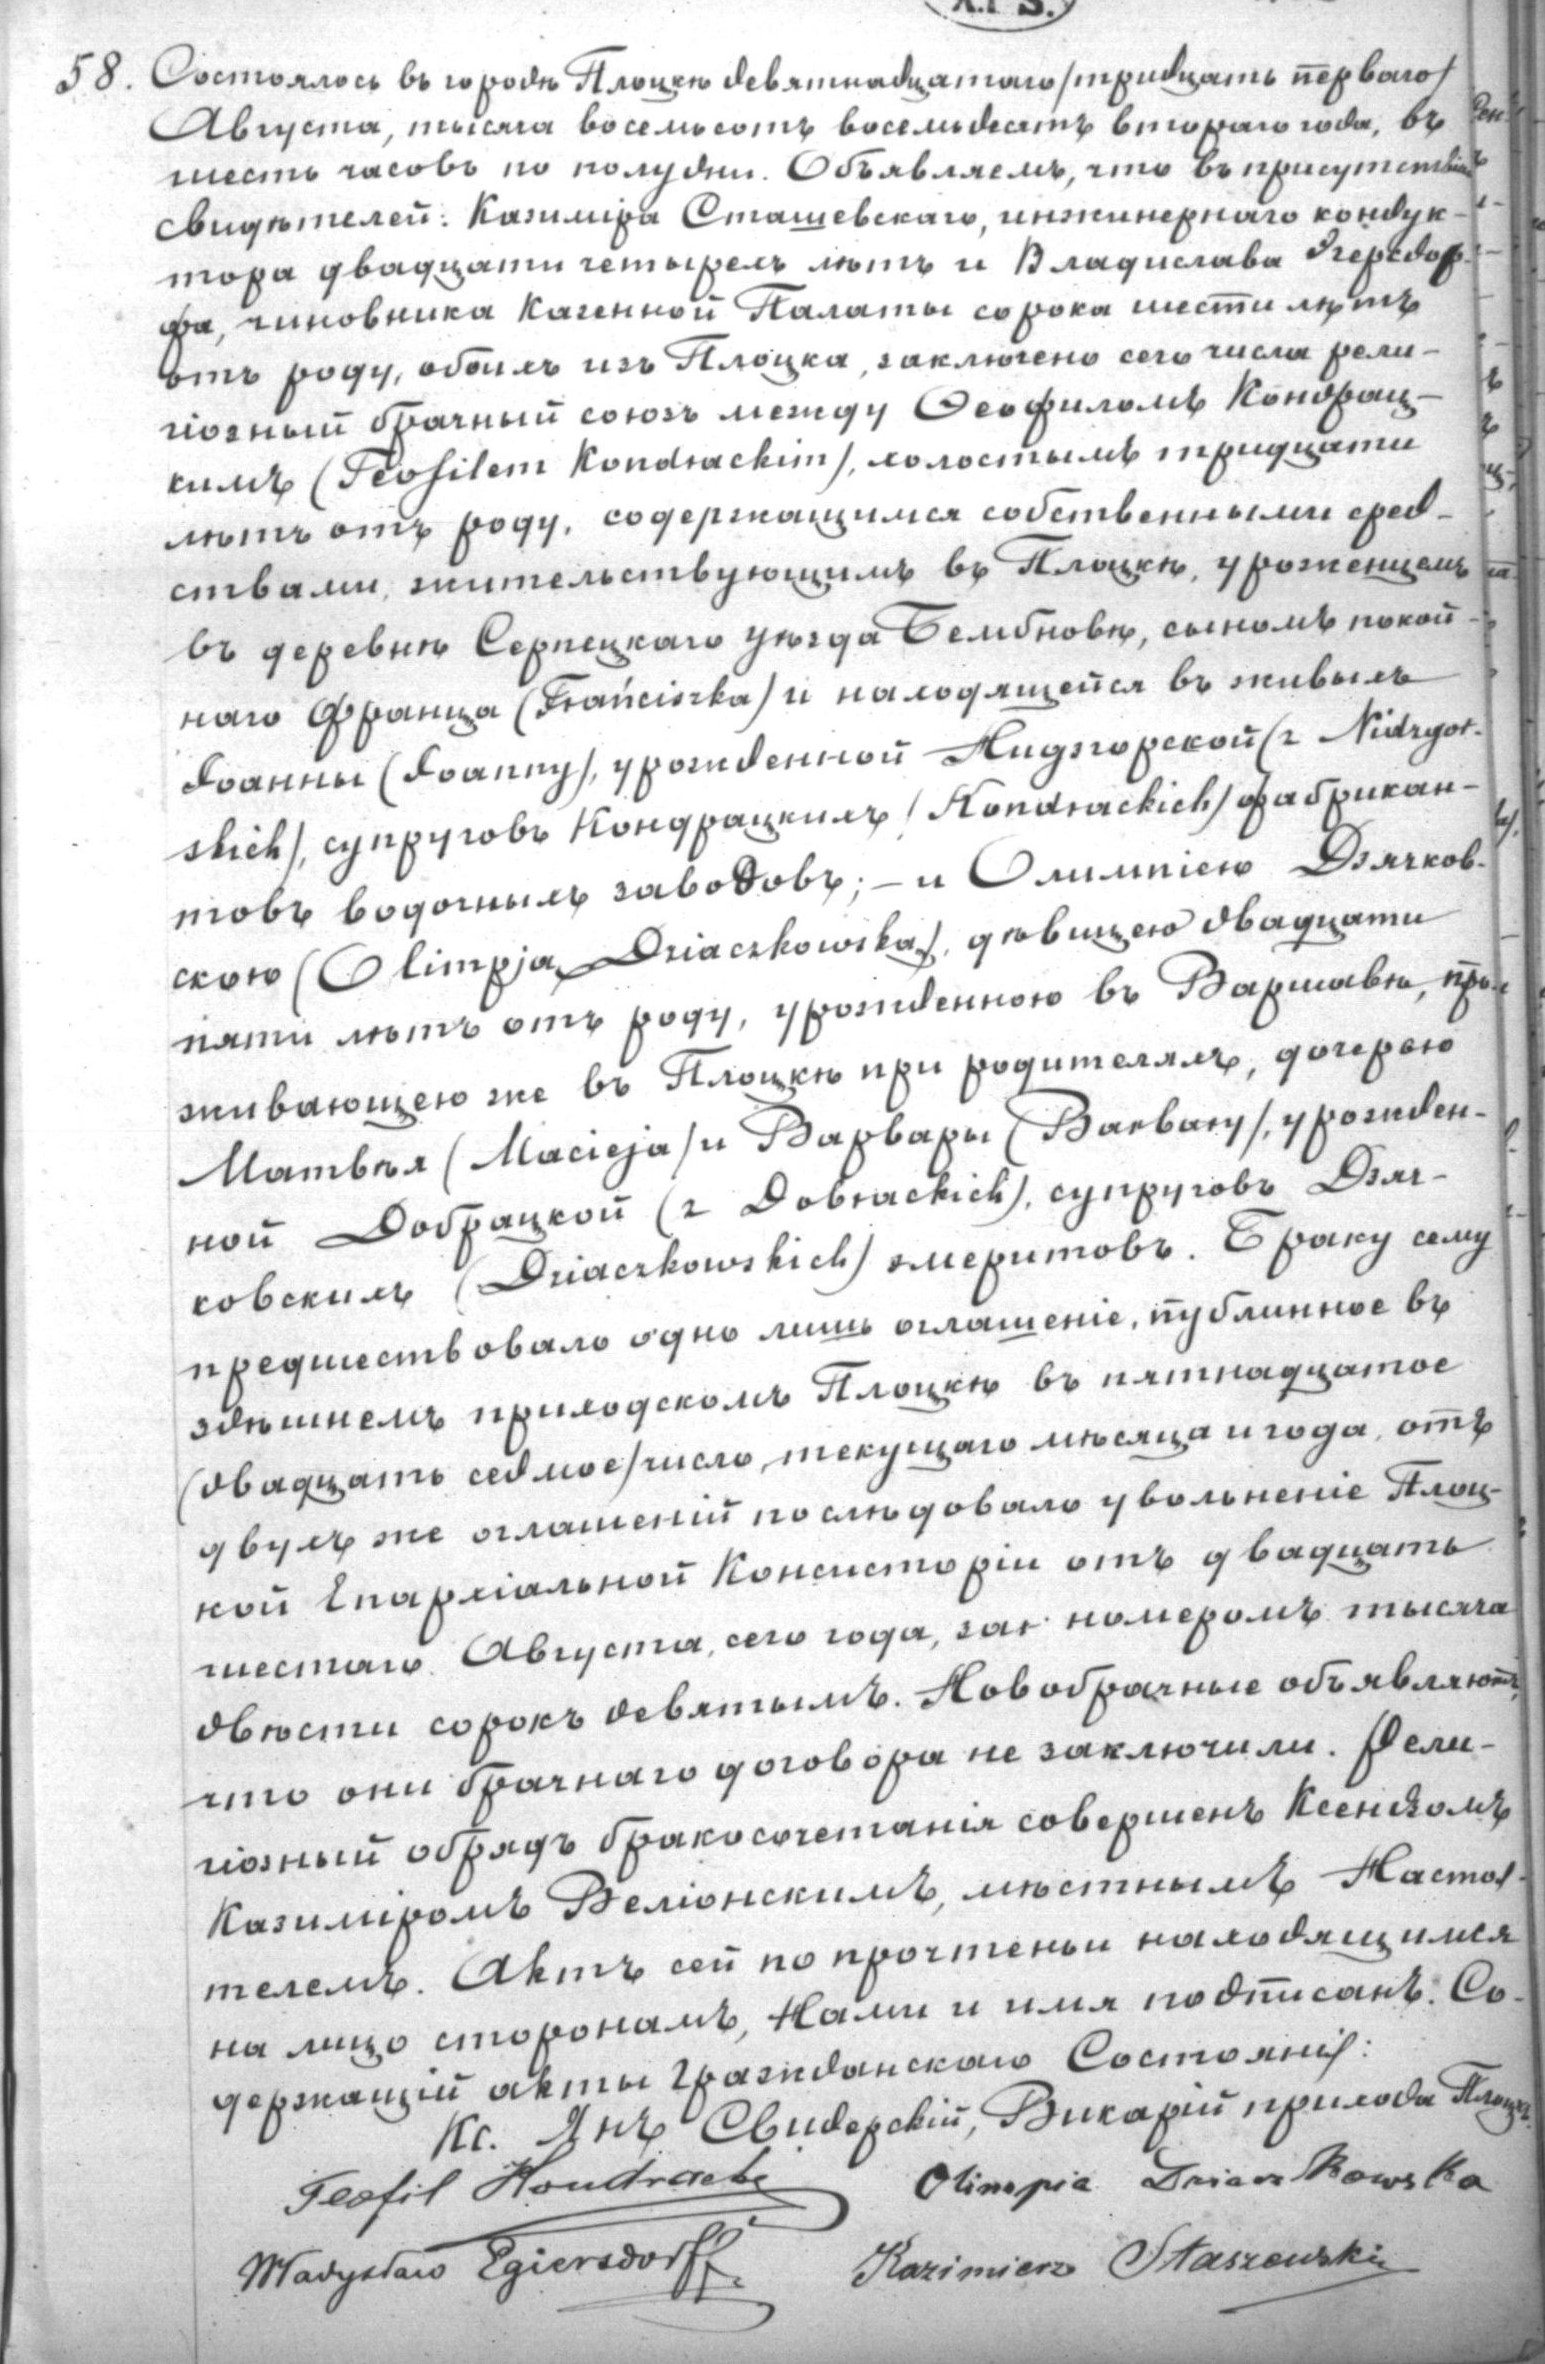 58. Состоялось въ городѣ Плоцкѣ девятнадцатаго /тридцать перваго/
Августа, тысяча восемьсотъ восемьдесятъ втораго года, въ
шесть часовъ по полудни. Объявляемъ, что въ присутствіи
свидѣтелей: Казиміра Сташевскаго, инжинернаго кондук-
тора двадцати четырехъ лѣтъ и Владислава Эгерсдор-
фа, чиновника Казенной Палаты сорока шести лѣтъ
отъ роду, обоихъ изъ Плоцка, заключено сего числа рели-
гіозный брачный союзъ между Ѳеофиломъ Кондрац-
кимъ (Teofilem Kondrackim), холостымъ тридцати
лѣтъ отъ роду, содержащимся собственными сред-
ствами, жительствующимъ въ Плоцкѣ, уроженцемъ
въ деревнѣ Серпецкаго уѣзда Бембновѣ, сыномъ покой-
наго Франца (Franciszka) и находящейся въ живыхъ
Іоанны (Joanny), урожденной Нидзгорской (z Nidzgor-
skich), супруговъ Кондрацкихъ (Kondrackich) фабрикан-
товъ водочныхъ заводовъ; – и Олимпіею Дзячков-
скою (Olimpją Dziaczkowską), дѣвицею двадцати
пяти лѣтъ отъ роду, урожденною въ Варшавѣ, про-
живающею же въ Плоцкѣ при родителяхъ, дочерью
Матвѣя (Macieja) и Варвары (Barbary), урожден-
ной Добрацкой (z Dobrackich), супруговъ Дзяч-
ковскихъ (Dziaczkowskich) эмеритовъ. Браку сему
предшествовало одно лишь оглашеніе, публинное въ
здѣшнемъ приходскомъ Плоцкѣ въ пятнадцатое
(двадцать седмое) число, текущаго мѣсяца и года, отъ
двухъ же оглашеній послѣдовало увольненіе Плоц-
кой Епархіальной Консисторіи отъ двадцать
шестаго Августа, сего года, за номеромъ тысяча
двѣсти сорокъ девятымъ. Новобрачные объявляютъ,
что они брачнаго договора не заключили. Рели-
гіозный обрядъ бракосочетанія совершенъ Ксендзомъ
Казиміромъ Веліонскимъ, мѣстнымъ Настоя-
телемъ. Актъ сей по прочтеньи находящимся
на лицо сторонамъ, Нами и имя подписанъ. Со-
держащій акты Гражданскаго Состоянія:
Кс. Янъ Свидерскій, Викарій прихода Плоцкъ
Teofil Kondracki Olimpia Dziaczkowska
Władysław Egiersdorff. Kazimierz Staszewski